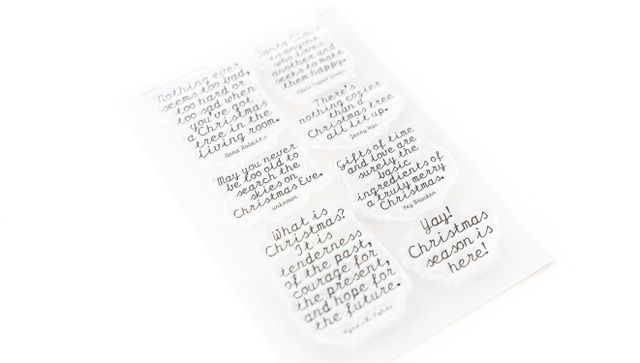 Nothing ever
seems too bad,
too hard or
too sad when
you've got
a Christmas
tree in the
living room.
Nora Roberts
Santa Claus
is anyone
who loves
another and
seeks to make
them happy.
There's
nothing cozier
than a
Christmas tree
all lit up.
Jenny Han
May you never
be too old to
search the
skies on
Christmas Eve.
unknown
Gifts of time
and love are
surely the
basic
ingredients of
a truly merry
Christmas.
Peg Bracken
What is
Christmas?
It is
tenderness
of the past,
courage for
the present,
and hope for
the future.
Agnes M. Pahro
Yay!
Christmas
season is
here!